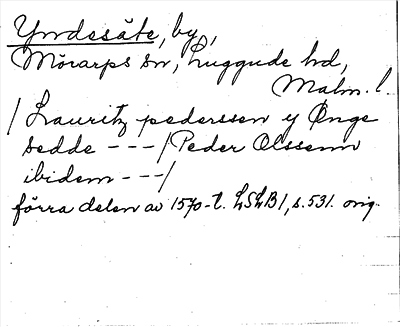 Yndesäte, by,
Mörarps sn, Luggude hd,
Malm. l.
/ Lauritz pederssen y Ønge
sedde --- / Peder Olssenn
ibidem --- /
förra delen av 1570-t. LSLB1, s. 531. orig.